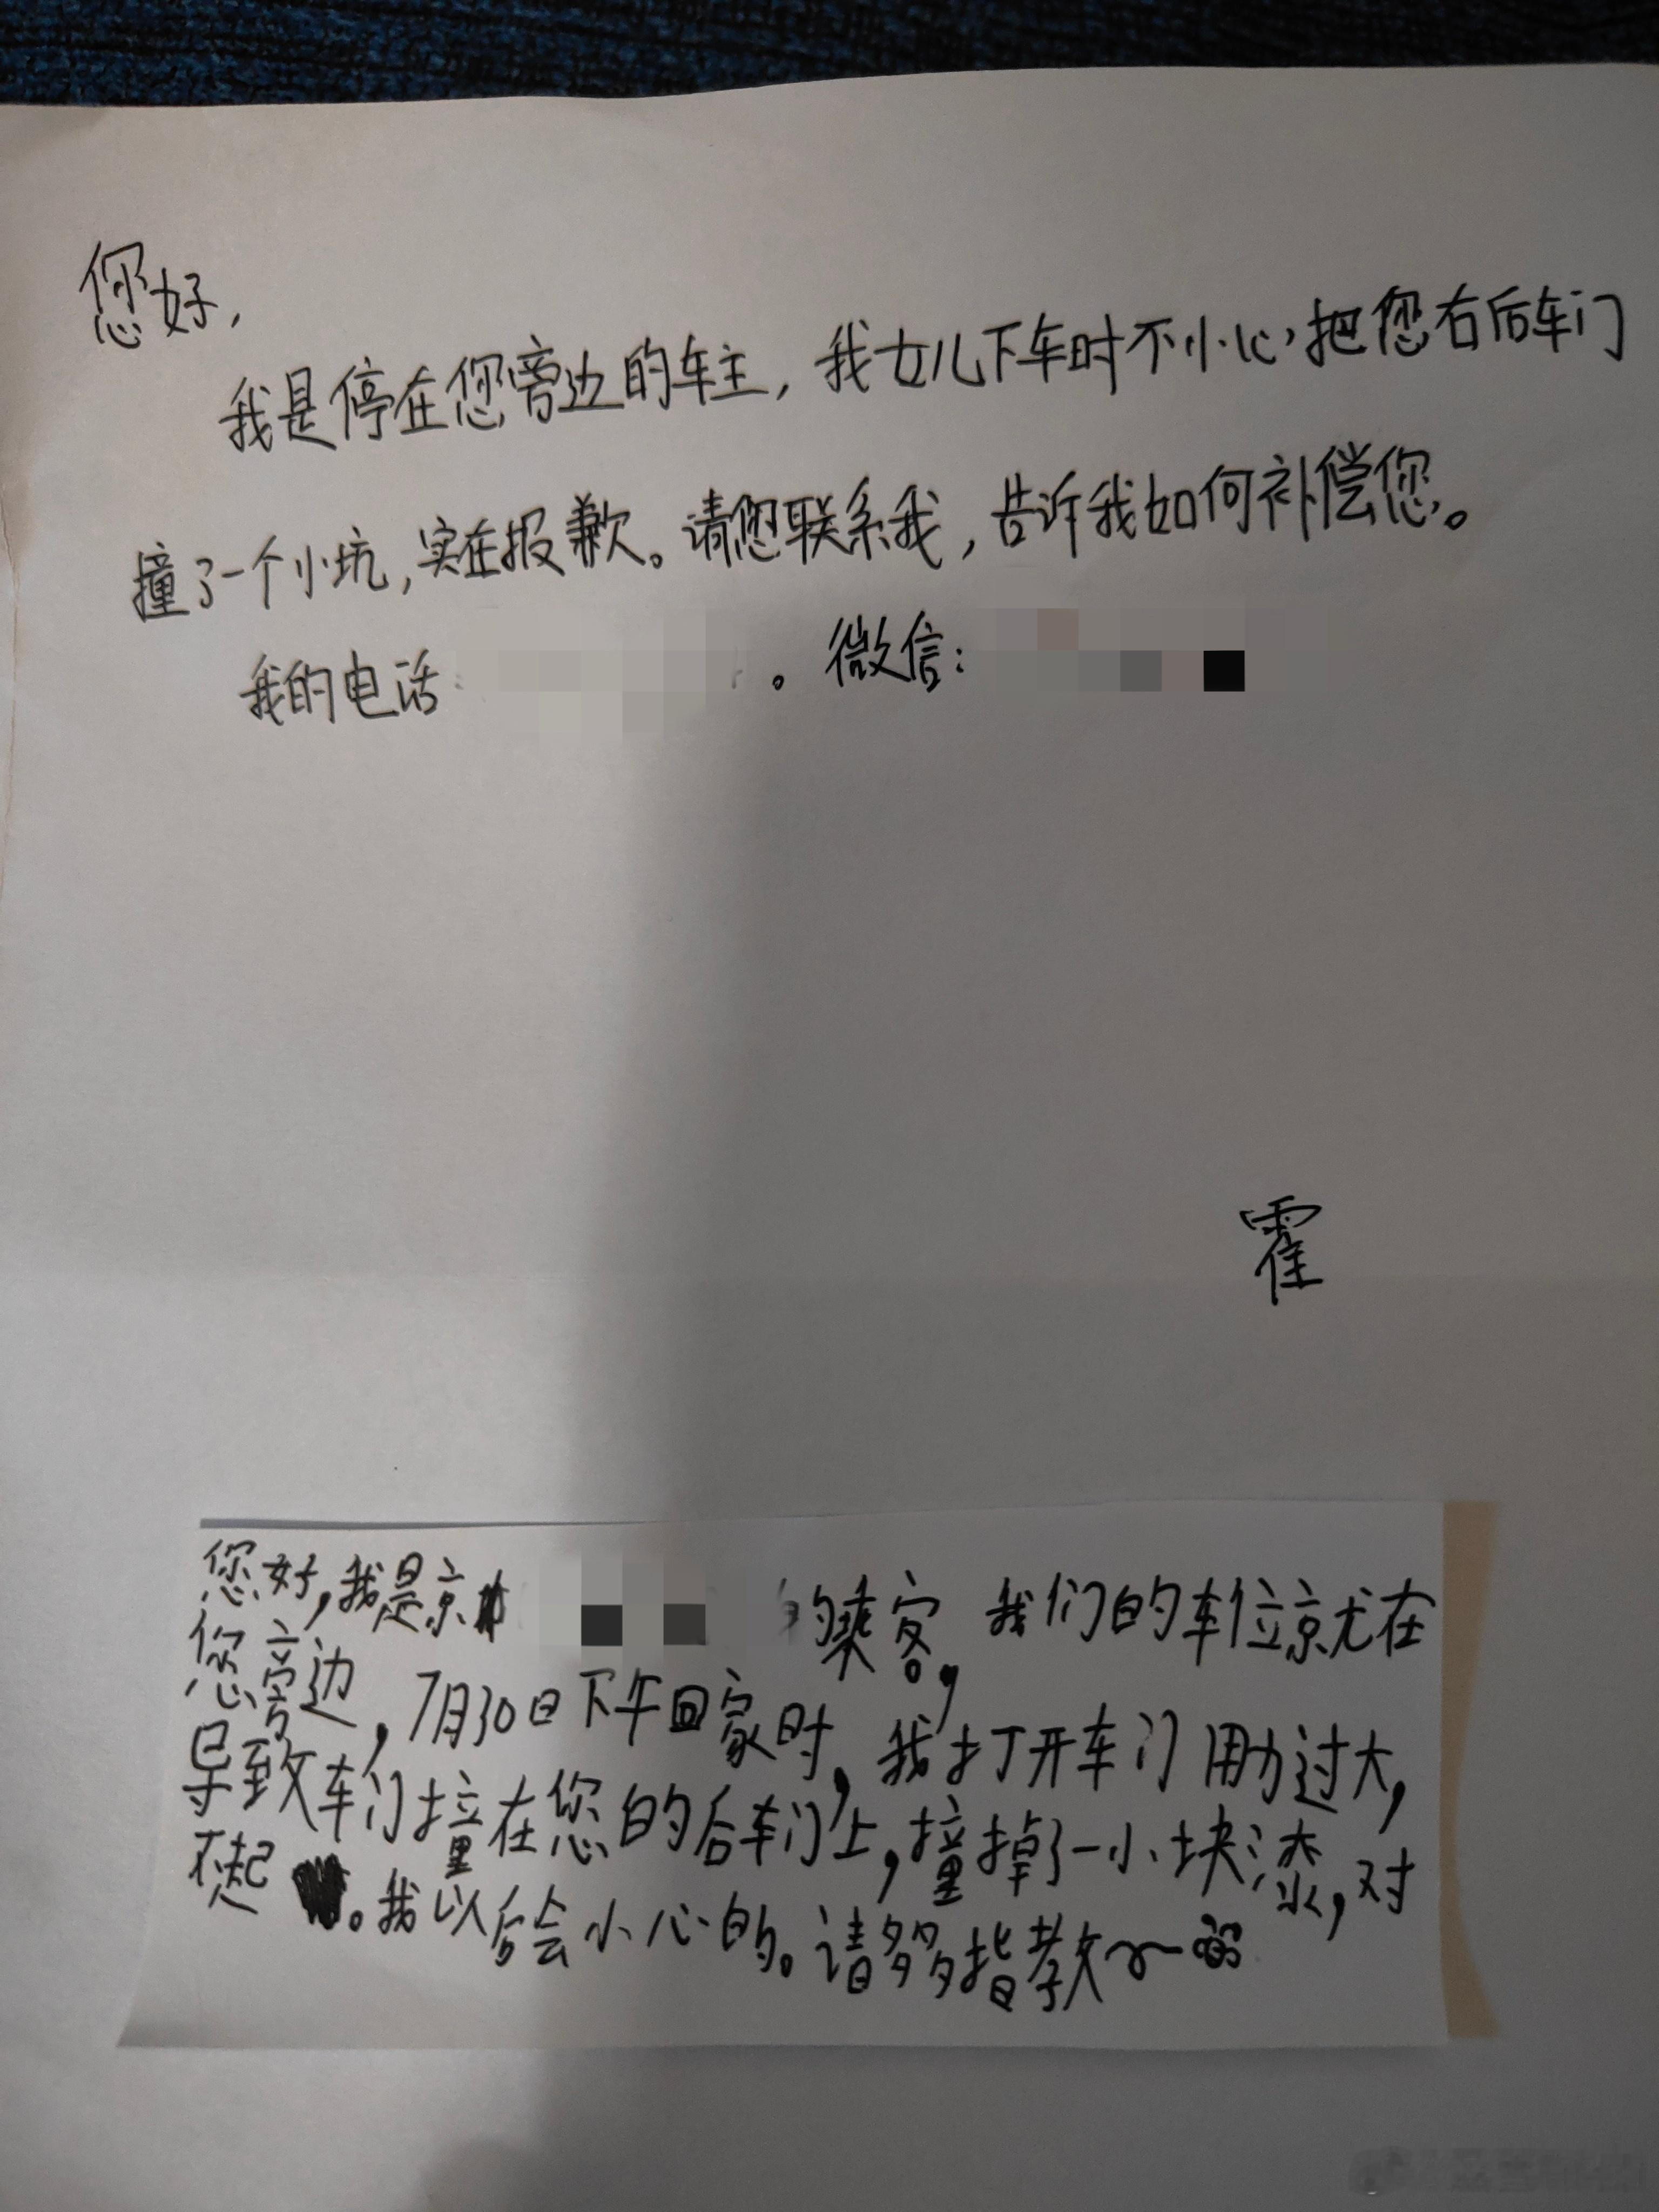 您好,
我是停在您旁边的车主,我女儿下车时不小心把您右后车门
撞了一个小坑,实在报歉。请您联系我,告诉我如何补偿您。
我的电话:。微信:
霍
您好,我是京的乘客,我们的车位京尤在
您旁边,7月30日下午回家时,我打开车门用力过大,
导致车门撞在您的后车门上,撞掉了一小块漆,对
不起。我以后会小心的。请多多指教